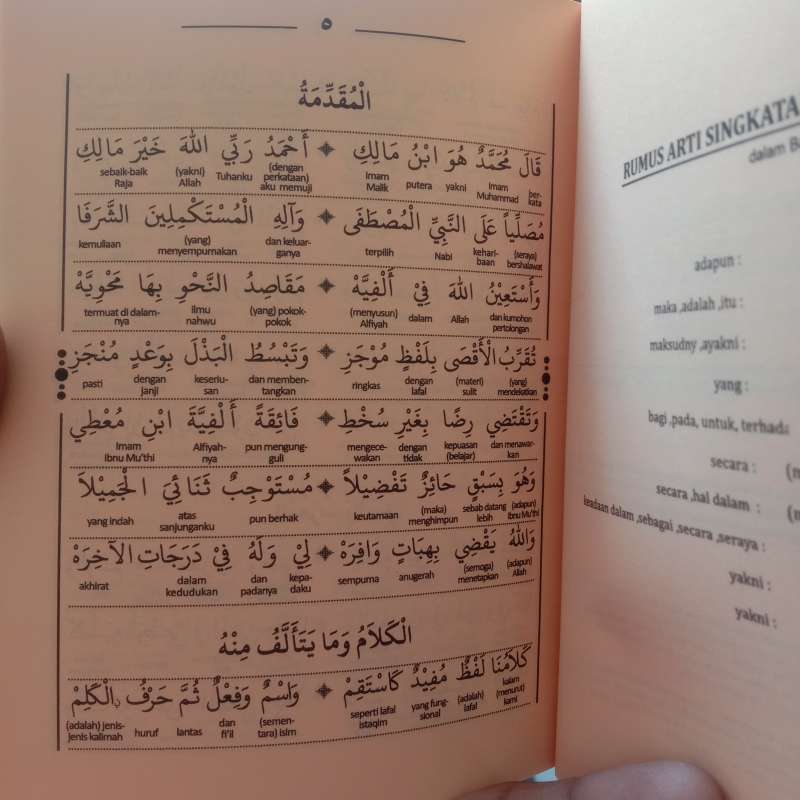 ٥
الْمُقَدِّمَةُ
قَالَ مُحَمَّدٌ هُوَ ابْنُ مَالِكِ ✦ أَحْمَدُ رَبِّي اللهَ خَيْرَ مَالِكِ
ber-kata Imam Muhammad yakni putera Imam Malik (dengan perkataan) aku memuji Tuhanku (yakni) Allah sebaik-baik Raja
مُصَلِّياً عَلَى النَّبِيِّ الْمُصْطَفَى ✦ وَآلِهِ الْمُسْتَكْمِلِينَ الشَّرَفَا
(seraya) bershalawat kehari-baan Nabi terpilih dan keluar-ganya (yang) menyempurnakan kemuliaan
وَأَسْتَعِيْنُ اللهَ فِيْ أَلْفِيَّهْ ✦ مَقَاصِدُ النَّحْوِ بِهَا مَحْوِيَّهْ
dan kumohon pertolongan Allah dalam (menyusun) Alfiyah (yang) pokok-pokok ilmu nahwu termuat di dalam-nya
تُقَرِّبُ الْأَقْصَى بِلَفْظٍ مُوْجَزِ ✦ وَتَبْسُطُ الْبَذْلَ بِوَعْدٍ مُنْجَزِ
(yang) mendekatkan (materi) sulit dengan lafal ringkas dan memben-tangkan keseriu-san dengan janji pasti
وَتَقْتَضِي رِضًا بِغَيْرِ سُخْطِ ✦ فَائِقَةً أَلْفِيَّةَ ابْنِ مُعْطِي
dan menawar-kan kepuasan (belajar) dengan tidak mengece-wakan pun mengung-guli Alfiyah-nya Imam Ibnu Mu'thi
وَهُوَ بِسَبْقٍ حَائِزٌ تَفْضِيْلاً ✦ مُسْتَوْجِبٌ ثَنَائِيَ الْجَمِيْلاَ
(adapun) Ibnu Mu'thi sebab datang lebih (maka) menghimpun keutamaan pun berhak atas sanjunganku yang indah
وَاللهُ يَقْضِي بِهِبَاتٍ وَافِرَهْ ✦ لِيْ وَلَهُ فِيْ دَرَجَاتِ الْآخِرَهْ
(adapun) Allah (semoga) menetapkan anugerah sempurna kepa-daku dan padanya dalam kedudukan akhirat
الْكَلاَمُ وَمَا يَتَأَلَّفُ مِنْهُ
كَلاَمُنَا لَفْظٌ مُفِيْدٌ كَاسْتَقِمْ ✦ وَاسْمٌ وَفِعْلٌ ثُمَّ حَرْفُ ۨالْكَلِمْ
kalam (menurut) kami (adalah) lafal yang fung-sional seperti lafal istaqim (semen-tara) isim dan fi'il lantas huruf (adalah) jenis-jenis kalimah
RUMUS ARTI SINGKATA
dalam Ba
adapun :
maka ,adalah ,itu :
maksudny ,ayakni :
yang :
bagi ,pada, untuk, terhada
secara :
secara ,hal dalam :
keadaan dalam ,sebagai ,secara ,seraya :
yakni :
yakni :